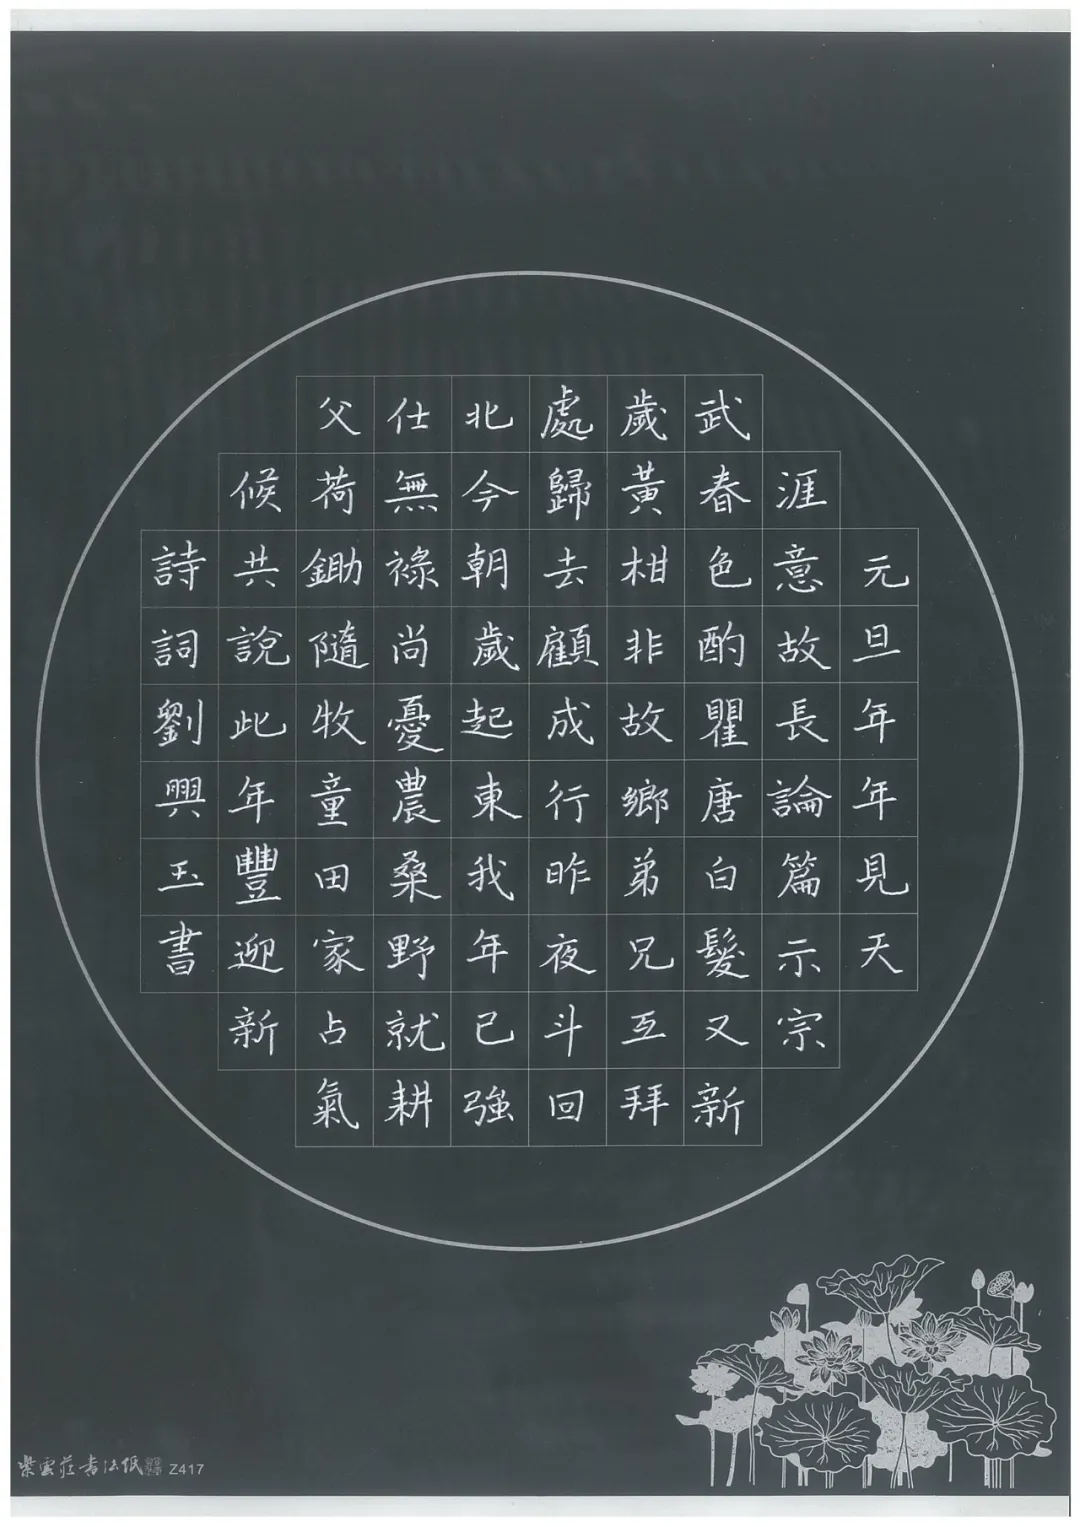 元旦年年見天
涯意故長論篇示宗
武春色酌瞿唐白髮又新
歲黃柑非故鄉弟兄互拜
處歸去顧成行昨夜斗回
北今朝歲起東我年已強
仕無祿尚憂農桑野就耕
父荷鋤隨牧童田家占氣
候共說此年豐迎新
詩詞劉興玉書
紫雲莊書法紙 Z417